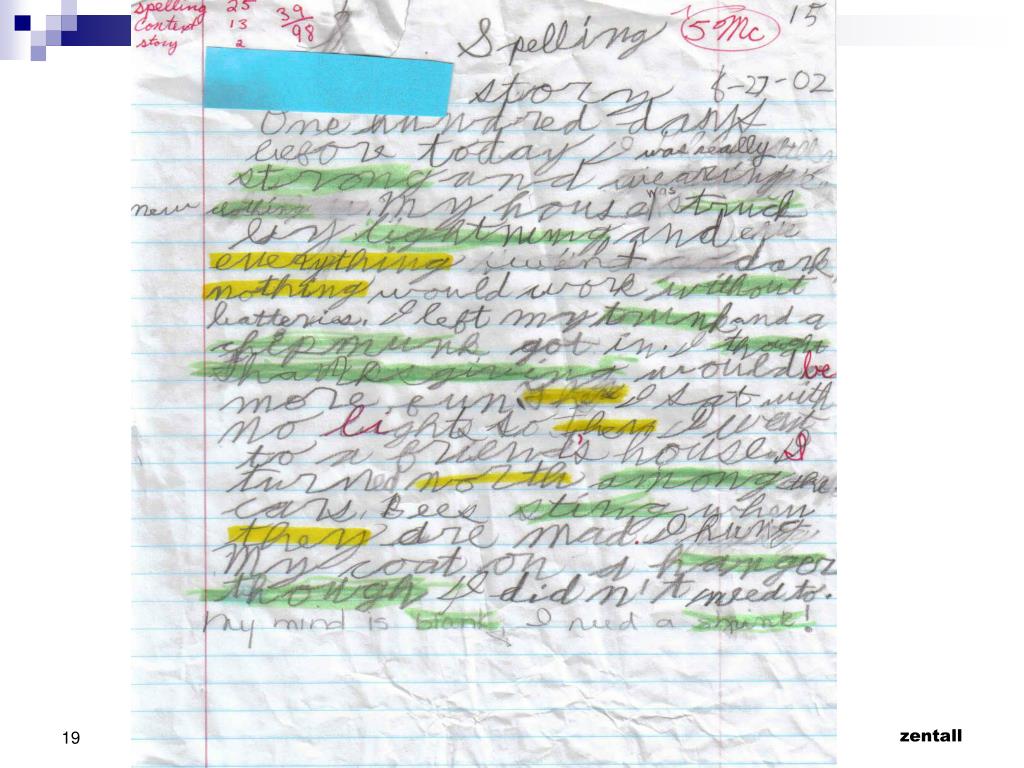 spelling 25 39/98
context 13
story 2
Spelling 5 Mc 15
story 8-27-02
One hundred days
before today, I was really
strong and wearing
new clothing. My house was struck
by lightning and
everything went dark
nothing would work without
batterias. I left my trunk and a
chipmunk got in. I thought
Thanksgiving would be
more fun. Then I sat with
no lights so then I went
to a friend's house. I
turned north among the
cars. Bees sting when
they are mad. I hung
My coat on a hanger
though I didn't need to.
My mind is blank. I need a shrink!
19
zentall